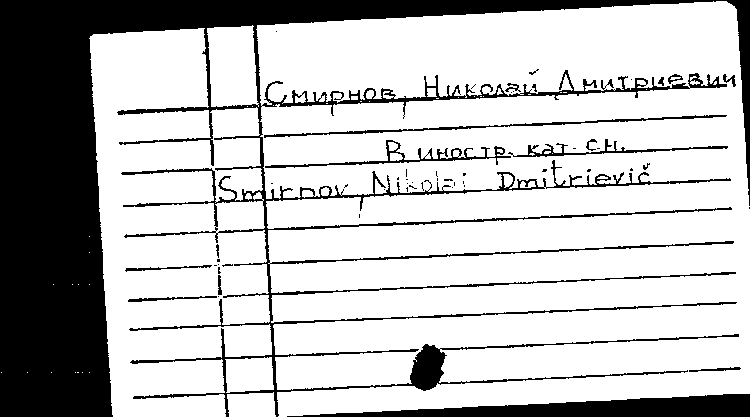 Смирнов, Николай Дмитриевич
В иностр. кат. см.
Smirnov, Nikolaj Dmitrievič